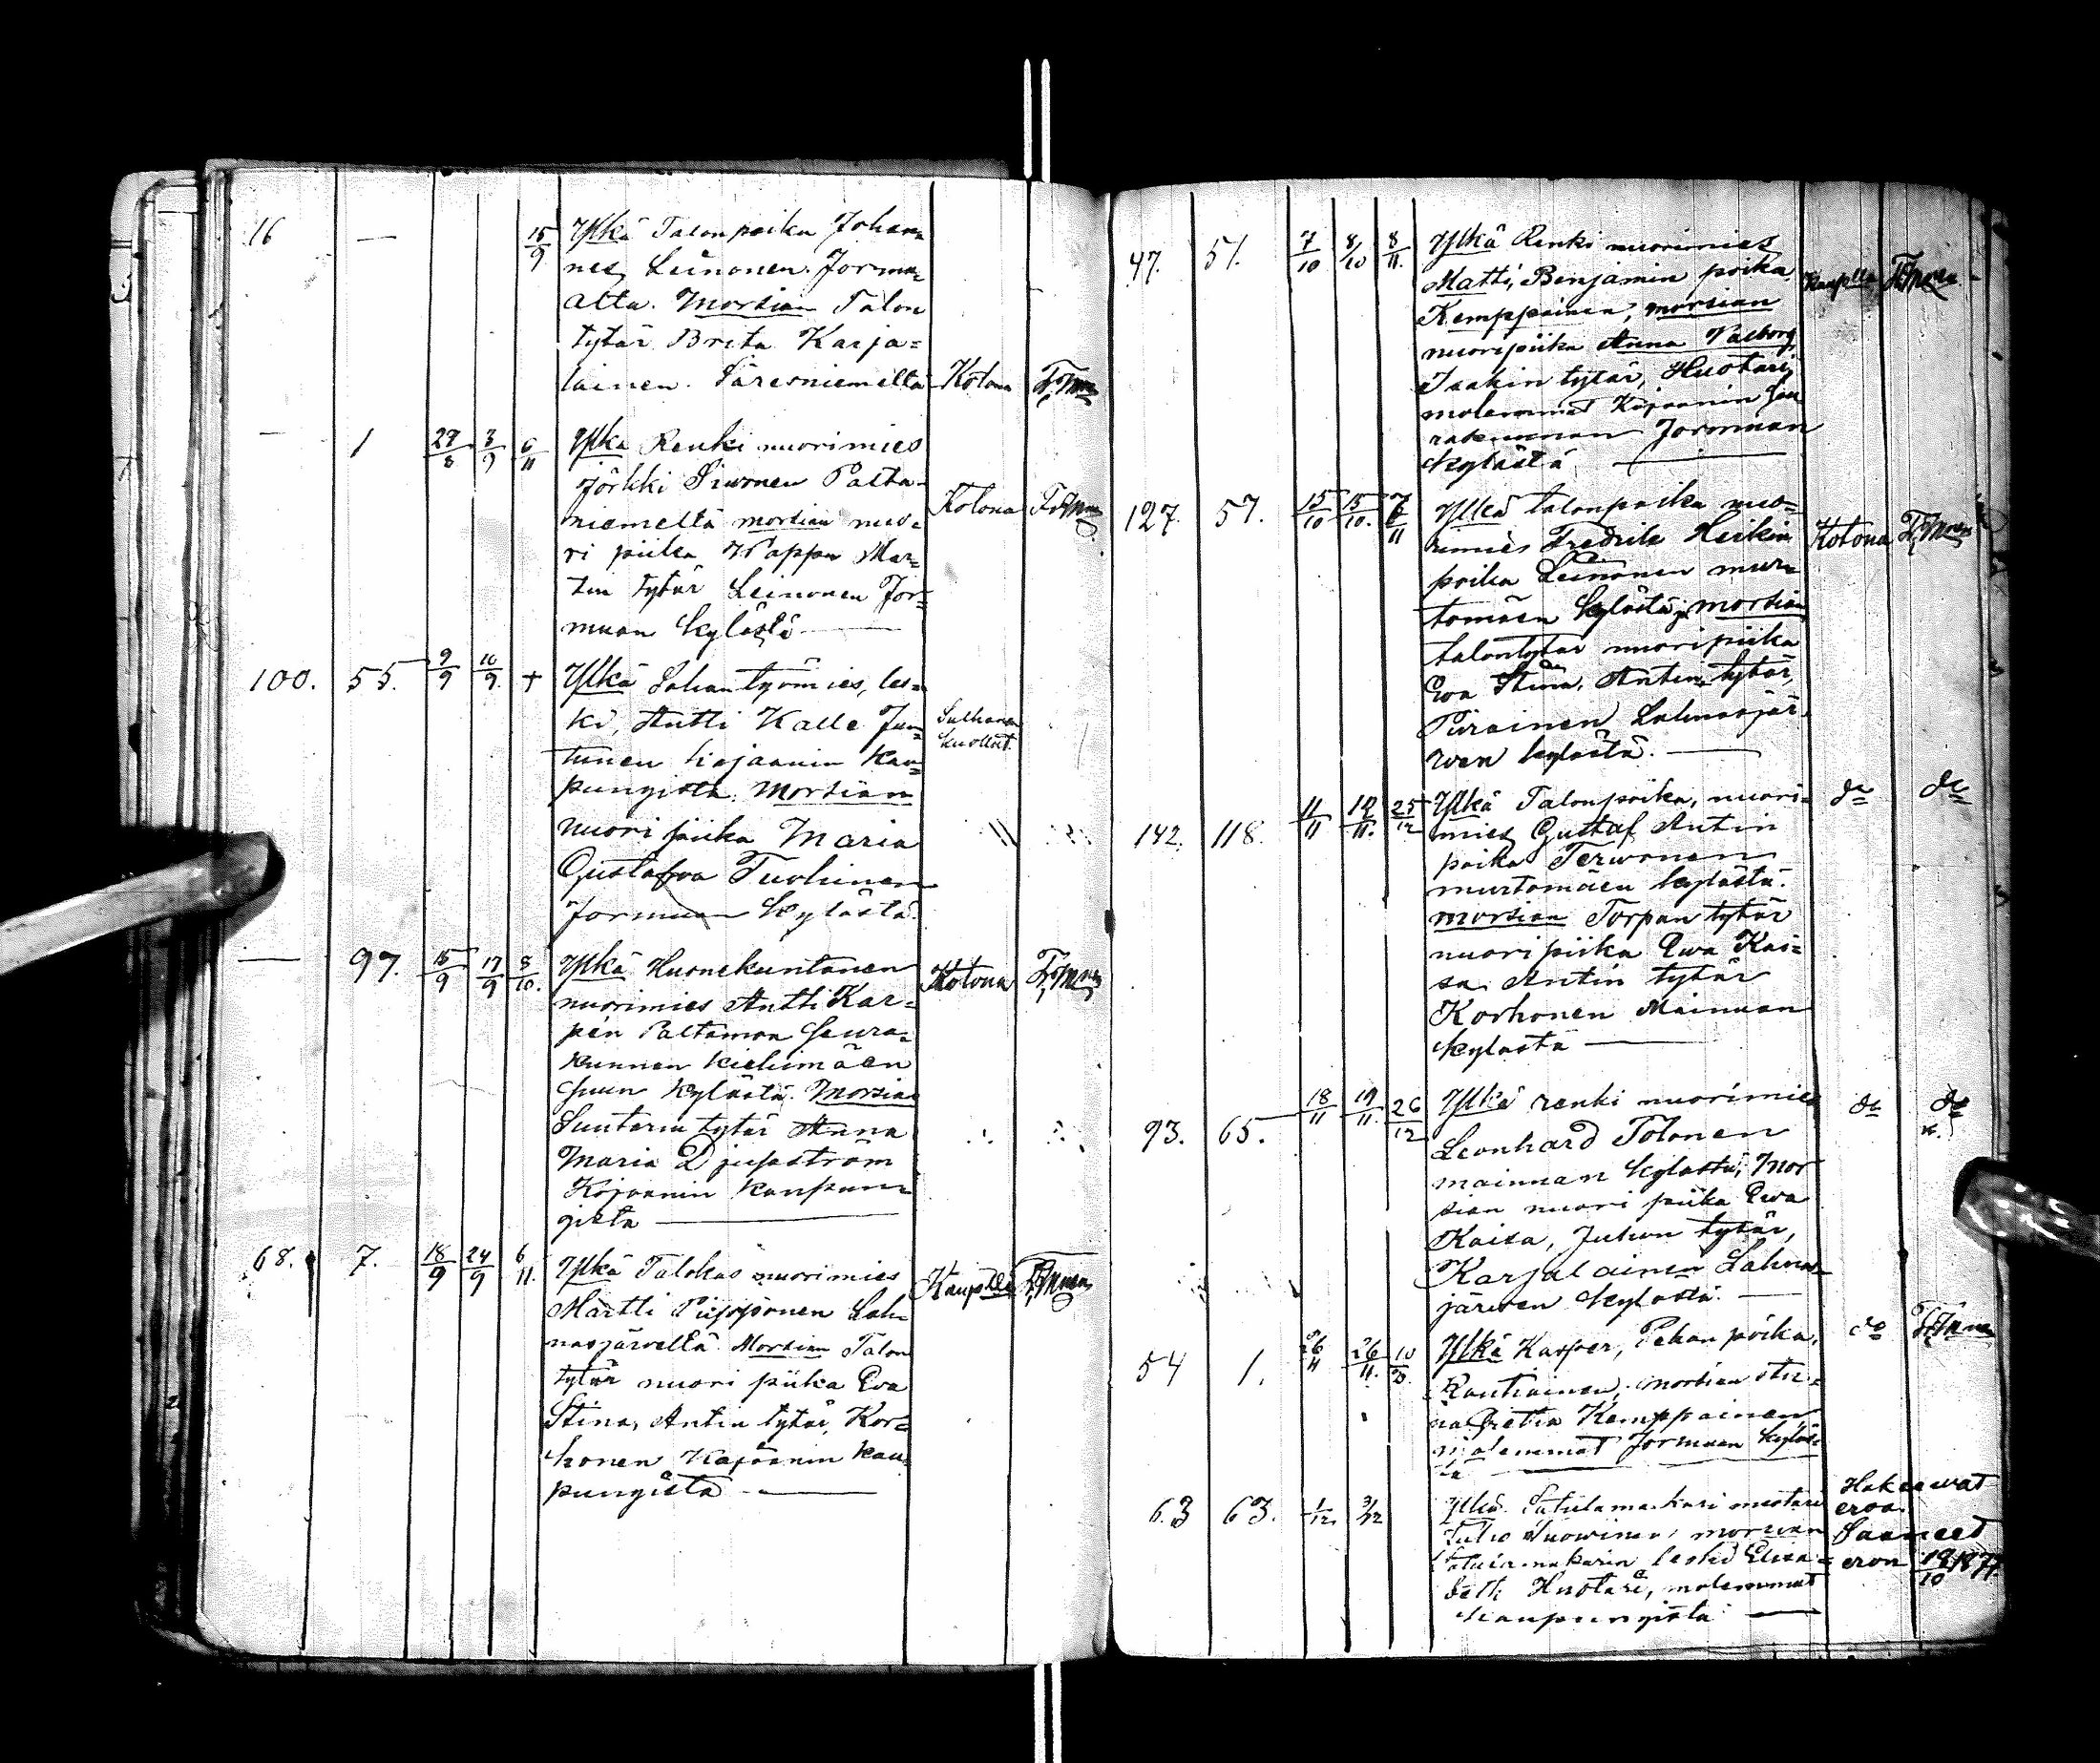 16 — 15/9 Ylkä Talonpoika Johan-
nes Leinonen Jormu-
alta. Morsian Talon
tytär Brita Karja=
lainen. Säresniemeltä Kotona
— 1 27/8 3/9 6/11 Ylkä Renki nuorimies
Jörkki Siwonen Palta-
niemeltä morsian nuo- Kotona
ri piika Wappu Mar-
tin tytär Leinonen Jor-
muan kylästä —
100. 55. 9/9 10/9. + Ylkä Sahantyömies, les-
ki, Antti Kalle Jun- Sulhanen
tunen Kajaanin kau- kuollut.
pungista. Morsian
nuori piika Maria
Gustafwa Tuohinen
Jormuan kylästä.
— 97. 15/9 17/9 8/10. Ylkä Huonekuntanen Kotona
nuorimies Antti Kar-
pén Paltamon seura-
kunnan kiehimäen
suun kylästä. Morsian
Suutarin tytär Anna
Maria
Kajaanin kaupun-
gista —
68. 7. 18/9 24/9 6/11. Ylkä Talokas nuorimies Kaup:lla
Martti Piipponen Lah-
nasjärveltä. Morsian Talon
tytär nuori piika Ewa
Stina, Antin tytär, Kor-
honen Kajaanin kau-
pungista —
47. 51. 7/10 8/10 8/11. Ylkä Renki nuorimies
Matti, Benjamin poika
Kemppainen, morsian
nuoripiika Anna Valborg,
Isakin tytär, Huotari,
molemmat Kajaanin seu
rakunnan Jormuan
kylästä —
127. 57. 15/10 15/10. Ylkä talonpoika nuo-
rimies Fredrik Heikin Kotona
poika Leinonen mur-
tomäen kylästä, morsian
talontytär nuoripiika
Ewa Stina, Antin tytär,
Piirainen Lahnasjär-
wen kylästä. —
142. 118. 11/11 12/11. 25/12 Ylkä Talonpoika, nuori- do do
mies Gustaf Antin
poika Terwonen
murtomäen kylästä.
morsian Torpan tytär
nuoripiika Ewa Kai-
sa Antin tytär
Korhonen Mainuan
kylästä —
93. 65. 18/11 19/11. 26/12 Ylkä renki nuorimies do do
Leonhard Tolonen
mainuan kylästä, Mor
sian nuori piika Ewa
Kaisa, Juhon tytär,
Karjalainen Lahnas-
järwen kylästä. —
54 1. 26/11 26/11. Ylkä Kasper, Pekan poika, do
Rautiainen, morsian Stii-
na Greta Kemppainen
molemmat Jormuan kyläs-
tä —
63 63. 1/12. 3/12 Ylkä Satulamaakari mestari Hakeewat
Juho Nuorinen, morsian eroa. Saaneet
Satulamakarin leski Elisa- eron 19/10 1877
beth Huotari, molemmat
kaupungista —